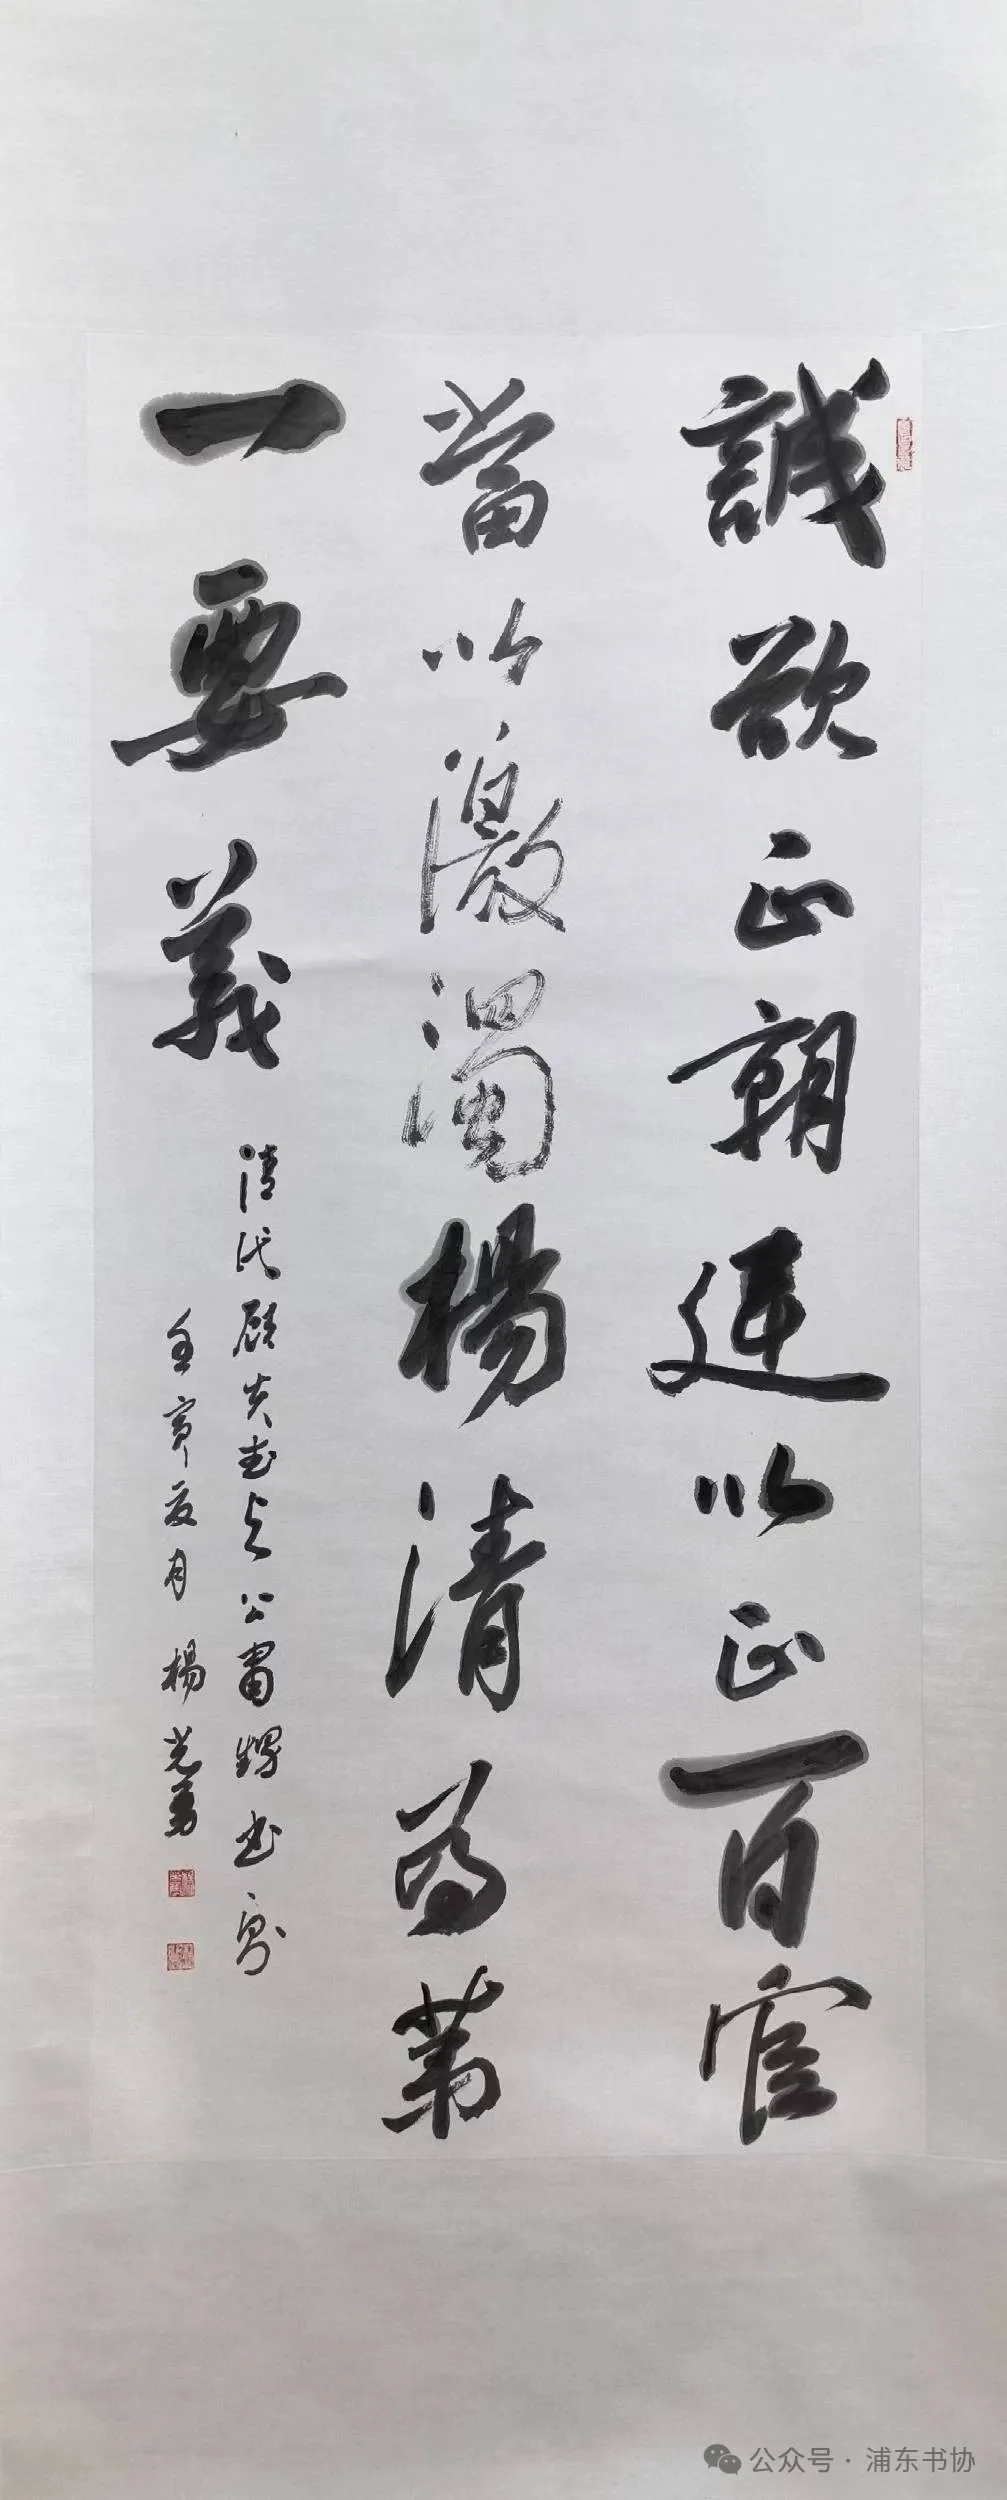 誠欲正朝廷以正百官
當以激濁楊清為第
一要義
清代顧炎武與公肅甥書句
壬寅夏月 楊光勇
公众号·浦东书协